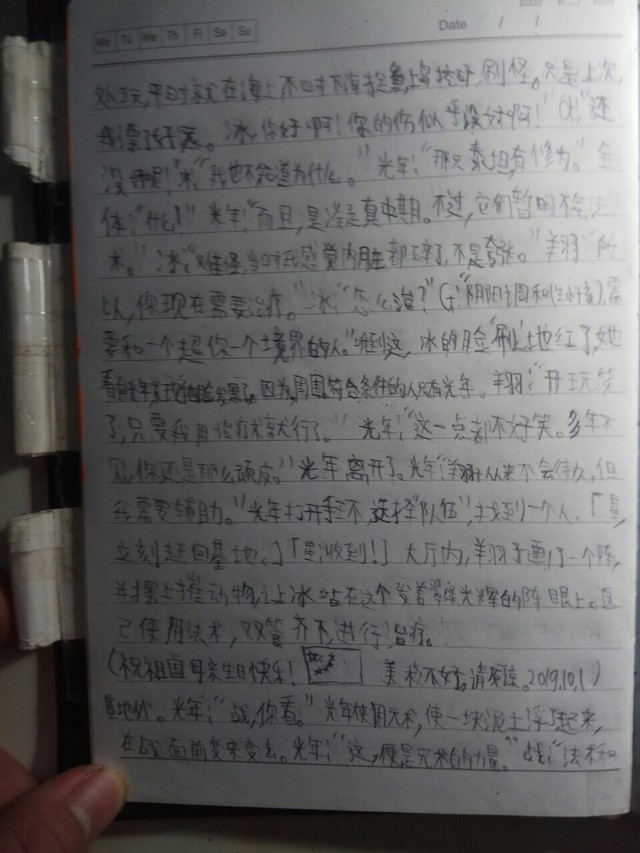 Mo Tu We Th Fr Sa Su
Date / /
处玩,平时就在海上不时下海捉鱼,上岸挖矿,刷怪。只是上次,
我漂了好远。冰,你好啊!你的伤似乎没好啊!"冰:"还
没
冰:"我也不知道为什么。"光年:"那只 有修为。"全
体:"什么!"光年:"而且,是 真中期。不过,它们暂时不会法
术。"冰:"难怪,当时我感觉内脏都碎了,不是夸张。"羊羽:"所
以,你现在需要治疗。"冰:"怎么治?"G:"阴阳调和 需
要和一个超你一个大境界的人。"听到这,冰的脸"刷"地红了,她
看向光年, 因为,周围符合条件的人只有光年。羊羽:"开玩笑
了,只要我用治疗术就行了。"光年:"这一点都不好笑。多年不
见,你还是那么顽皮。"光年离开了。光年:"羊羽从来不会 但
我需要辅助。"光年打开手环,选择"队伍",找到一个人。「星,
立刻赶回基地。」「星:收到!」大厅内,羊羽手画了一个阵,
并摆上 动物,让冰站在这个发着翠绿光辉的阵眼上。自
己使用法术,双管齐下,进行治疗。
(祝祖国母亲生日快乐! 美术不好,请原谅。2019.10.1)
基地外。光年:"战,你看。"光年使用元术,使一块泥土浮了起来,
在战面前变来变去。光年:"这,便是元术的力量。"战:"法术和